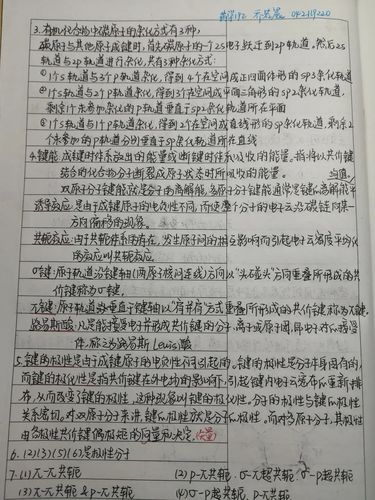 042119220
3.有机化合物中碳原子的杂化方式有3种,
碳原子与其他原子成键时,首先碳原子的一个2S电子跃迁到2p轨道,然后2S
轨道与2p轨道进行杂化,共有3种杂化方式:
①1个S轨道与3个P轨道杂化,得到4个在空间成正四面体形的sp3杂化轨道
②1个S轨道与2个p轨道杂化,得到3个在空间成平面三角形的sp2杂化轨道,
剩余1个未参加杂化的p轨道垂直于sp2杂化轨道所在平面
③1个S轨道与1个p轨道杂化,得到2个在空间成直线形的sp杂化轨道,剩余2
个未参加的p轨道分别垂直于sp杂化轨道所在直线
4.键能:成键时体系放出的能量或断键时体系吸收的能量。指:将以共价键
结合的化合物分子断裂成原子状态时所吸收的能量。
双原子分子键能就是分子的离解能,多原子分子键能通常是键的离解能平
诱导效应:是由于成键原子的电负性不同,而使整个分子的电子云沿碳链向某一
方向偏移的现象。
共轭效应:由于共轭体系的存在,发生原子间的相互影响而引起电子云密度平均化
的效应叫共轭效应。
σ键:原子轨道沿键轴(两原子核间连线)方向以"头碰头"方向重叠所形成的共
价键称为σ键。
π键:原子轨道垂直于键轴以"肩并肩"方式重叠所形成的共价键称为π键
路易斯酸:凡是能接受电子并形成共价键的分子、离子或原子团,即电子对接受体
,称之为路易斯(Lewis)酸
5.键的极性是由于成键原子的电负性不同引起的。键的极性是分子本身固有的,
而键的极化性是指共价键在外电场的影响下,引起键内电子云密度重新排
布,从而改变了键的极性,这种现象叫键的极化性,分子的极性与键的极性
关系密切。对双原子分子来讲,键的极性就是分子的极性。而对多原子分子,其极性
由各极性共价键偶极矩的向量和决定。
6.(2)(3)(5)(6)是极性分子
7.(1)π-π共轭
(2)p-π共轭,σ-π超共轭,σ-p超共轭
(3)π-π共轭 & p-π共轭
(4)σ-p超共轭,p-π共轭